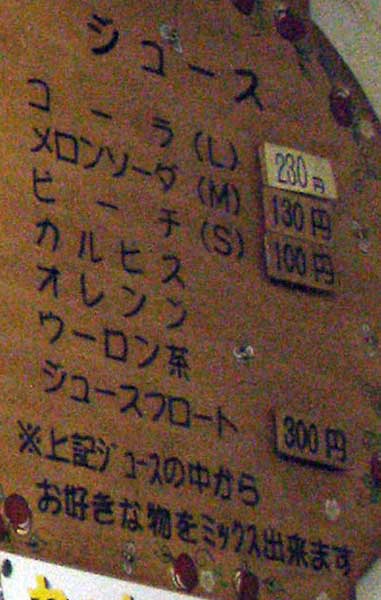 ジュース
コーラ (L) 230円
メロンソーダ (M) 130円
ピーチ (S) 100円
カルピス
オレンジ
ウーロン茶
ジュースフロート 300円
※上記ジュースの中から
お好きな物をミックス出来ます